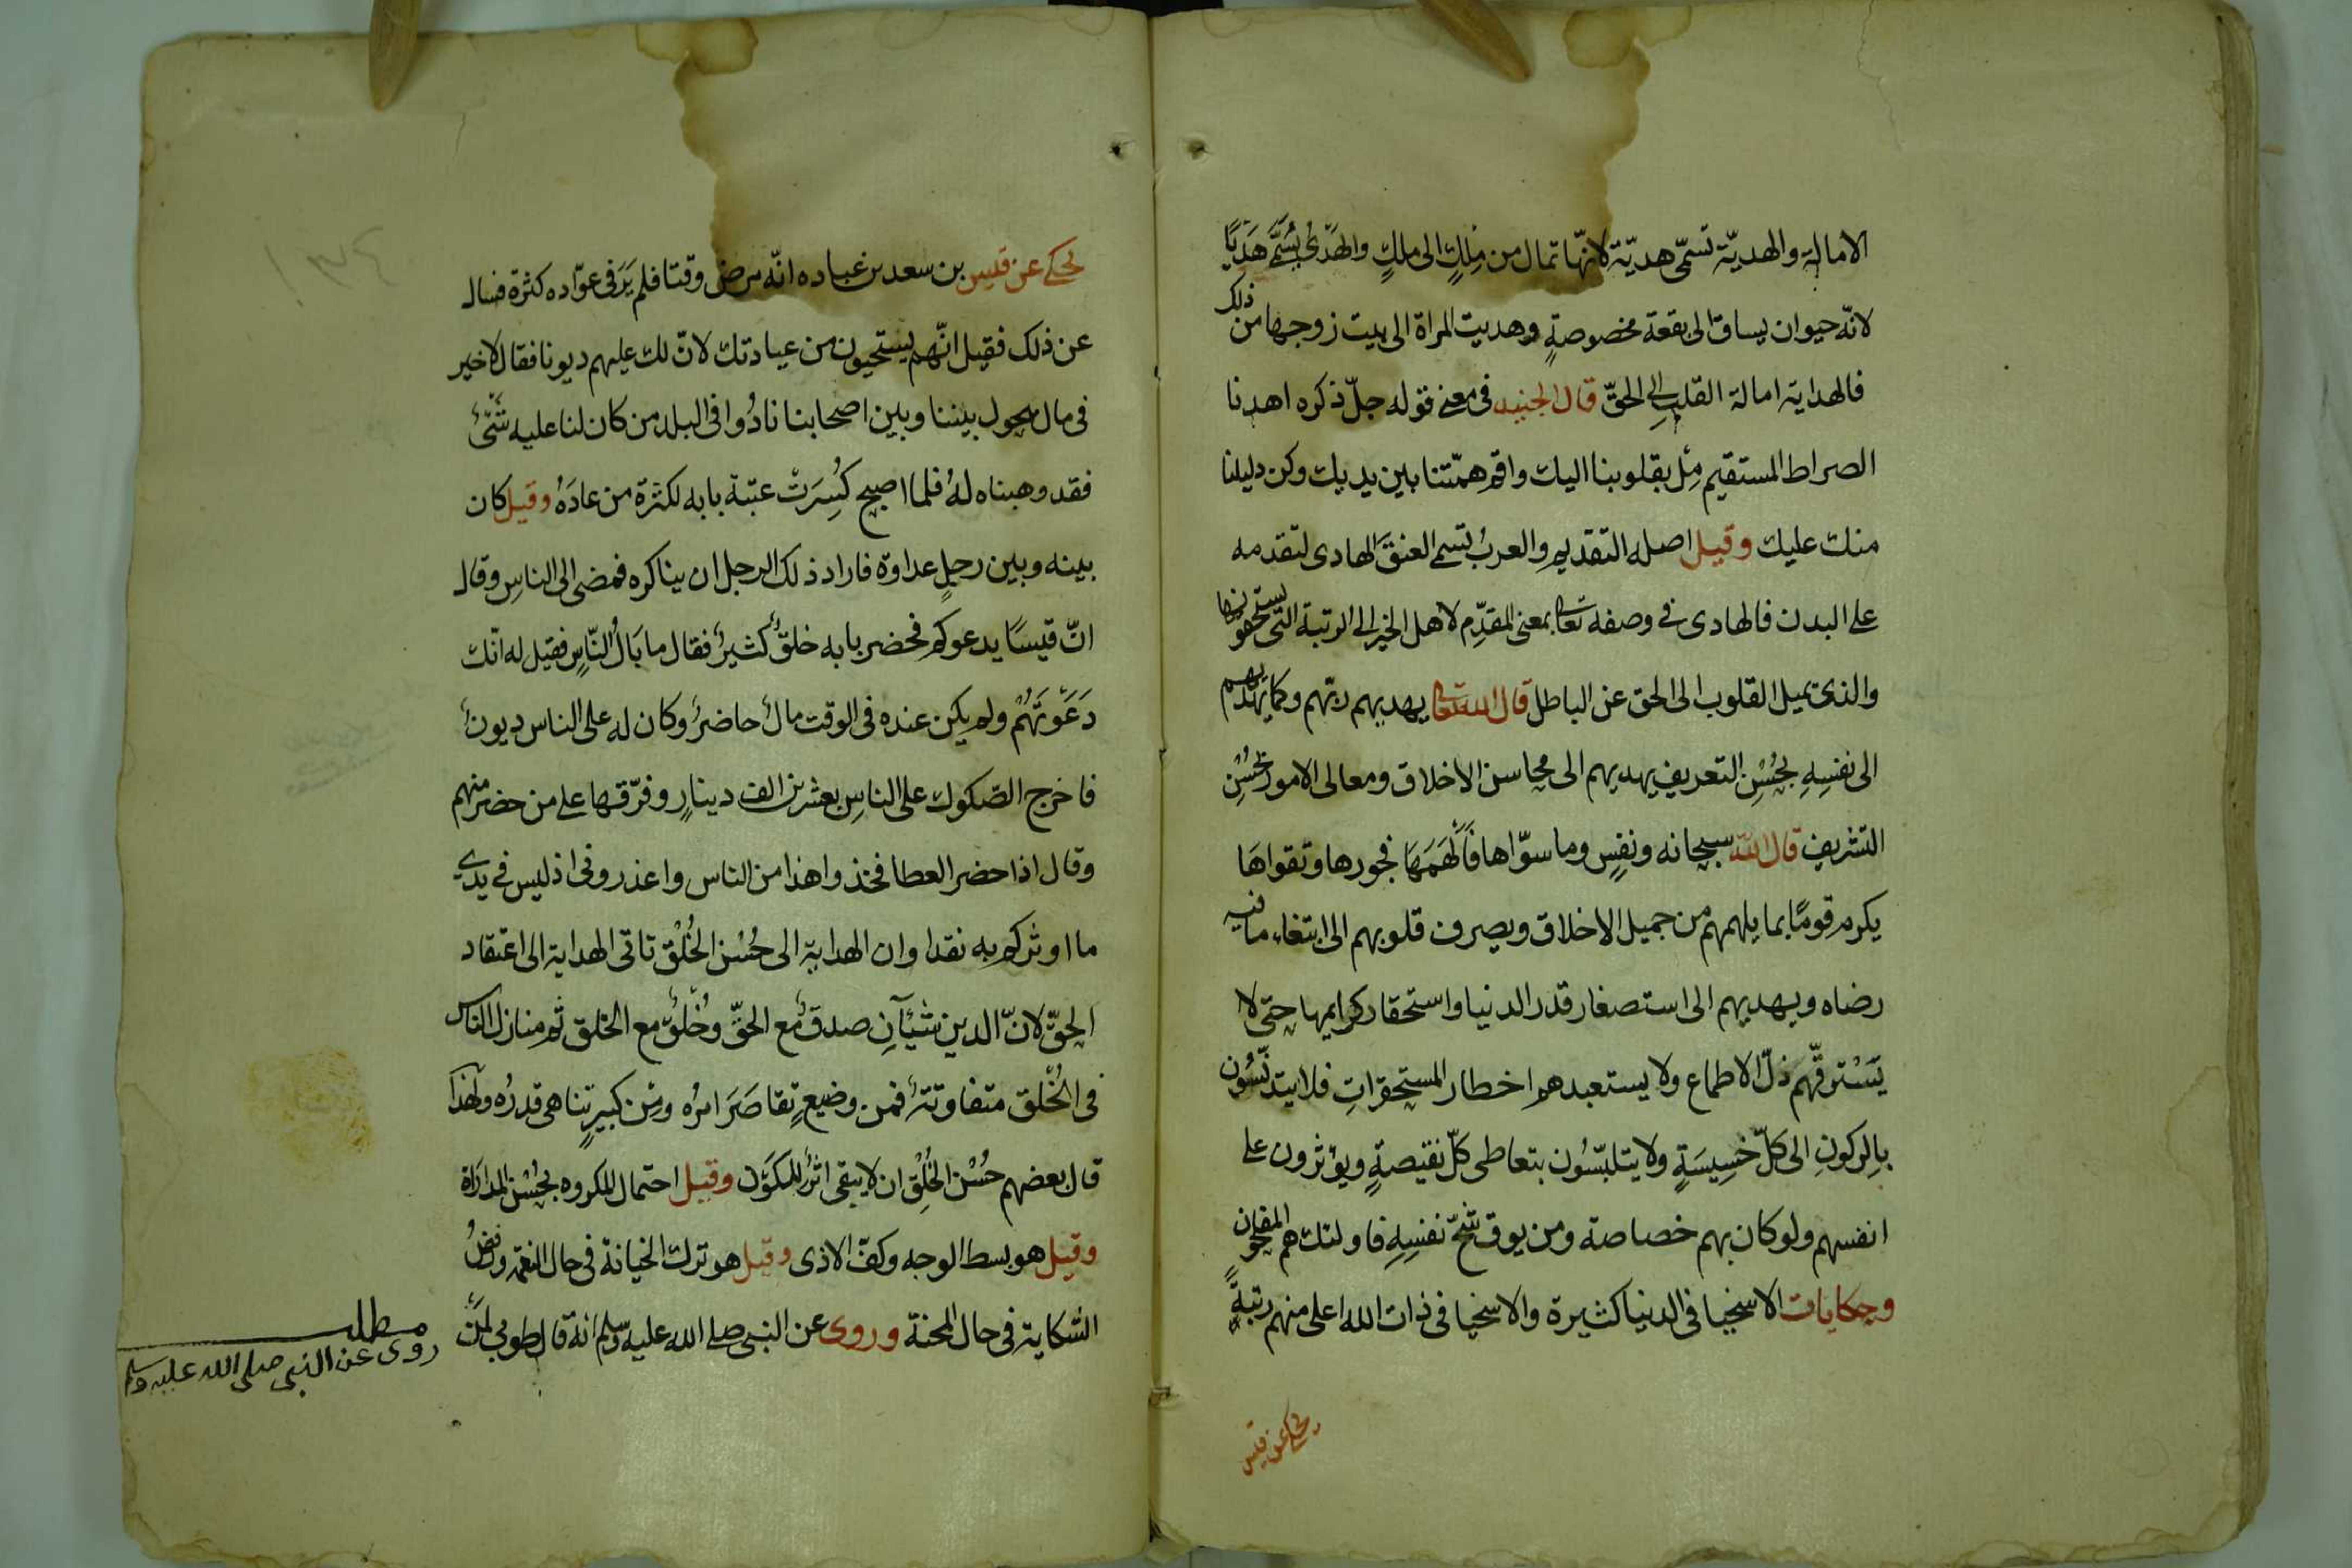 الامالة والهديّة تسمّى هديّة لانّها تمال من مِلكٍ الى ملكٍ والهَدْىُ يُسَمَّى هَدْيًا
لانّه حيوان يساق الى بقعة مخصوصةٍ وهديت المراة الى بيت زوجها من ذلك
فالهداية امالة القلب الى الحقّ قال الجنيد فى معنى قوله جلّ ذكره اهدنا
الصراط المستقيم مِل بقلوبنا اليك واقم همّتنا بين يديك وكن دليلنا
منك عليك وقيل اصله التقديم والعربُ تسمى العنقَ الهادى لتقدمه
على البدن فالهادى فى وصفه تعالى بمعنى المقدّم لاهل الخير الى الرتبة التى يستحقونها
والذى يميل القلوب الى الحق عن الباطل قال الله تعالى يهديهم ربّهم وكما يهديهم
الى نفسِهِ بحُسْنِ التعريف يهديهم الى محاسن الاخلاق ومعالى الامور بحُسْنِ
التشريف قال الله سبحانه ونفسٍ وما سوّاها فَاَلْهَمَهَا فجورها وتقواهَا
يكرم قومًا بما يلهمهم من جميل الاخلاق ويصرف قلوبهم الى ابتغاء ما فيه
رضاه ويهديهم الى استصغار قدر الدنيا واستحقار كرايمها حتى لا
يَسْترقّهم ذلّ الاطماع ولا يستعبدهم اخطار المستحقراتِ فلا يتدنّسُون
بِالركونِ الى كلّ خسِيسَةٍ ولا يتلبّسُون بتعاطى كلّ نقيصةٍ ويؤثرون على
انفسهم ولو كان بهم خصاصة ومن يوق شُحّ نفسِهِ فاولئك هم المفلحون
وحكايات الاسخيا فى الدنيا كثيرة والاسخيا فى ذات الله اعلى منهم رتبةً
يحكى عن قيس
يحكى عن قيس بن سعد بن عباده انّه مرض وقتا فلم يَرَ فى عوّاده كثرة فسال
عن ذلك فقيل انّهم يستحيون من عيادتك لانّ لك عليهم ديونا فقال لا خير
فى مال يحول بيننا وبين اصحابنا نادُوا فى البلد من كان لنا عليه شَىْءٌ
فقد وهبناه لهُ فلما اصبح كُسِرَتْ عتبة بابه لكثرة من عادَهُ وقيل كان
بينه وبين رجلٍ عداوة فاراد ذلك الرجل ان يناكره فمضى الى الناسِ وقال
انّ قيسًا يدعوكم فحضر بابه خلقٌ كثيرٌ فقال ما بَالُ النّاسِ فقيل له انّك
دَعَوْتَهُمْ ولم يكن عنده فى الوقت مالٌ حاضرٌ وكان له على الناس ديونٌ
فاخرج الصّكوك على الناسِ بعشرين الف دينارٍ وفرّقها على من حضر منهم
وقال اذا حضر العطا فخذوا هذا من الناس واعذرونى اذ ليس فى يدي
ما اوثركم به نقدا وان الهداية الى حُسْنِ الخُلْق تاتى الهداية الى اعتقاد
الحقّ لانّ الدين شيآنِ صدقٌ مع الحقِّ وخُلقٌ مع الخلق ثم منازل الناس
فى الخُلق متفاوتةٌ فمن وضيعٍ تقاصَرَ امرُه ومِن كبيرٍ تناهى قدرُه ولهذا
قال بعضهم حُسْن الخُلْقِ ان لا يبقى اثرٌ للمكوّن وقيل احتمال المكروه بحُسْن المداراة
وقيل هو بسط الوجه وكفّ الاذى وقيل هو ترك الخيانة فى حال النعمة ورفضُ
الشكاية فى حال المحنة وروى عن النبى صلى الله عليه وسلم انه قال طوبى لمَنْ
مطلب
روى عن النبى صلى الله عليه وسلم
١٣٤